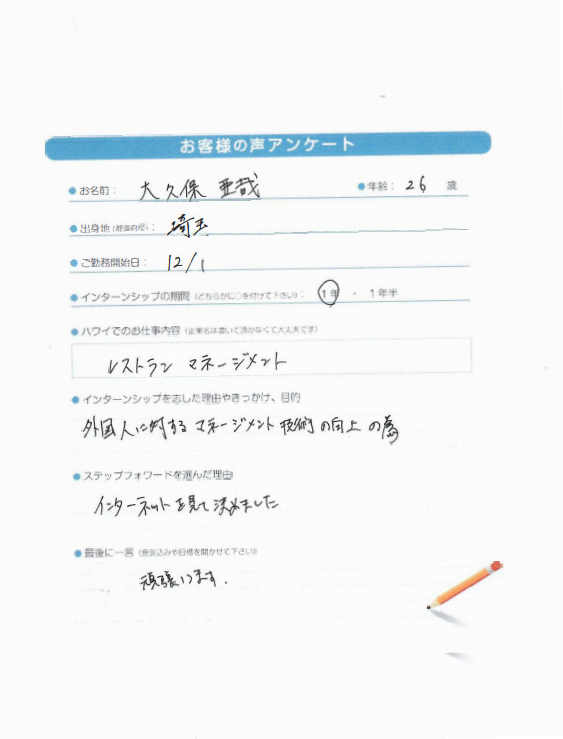 お客様の声アンケート
●お名前： 大久保 亜哉 ●年齢： 26 歳
●出身地（都道府県）： 埼玉
●ご勤務開始日： 12/1
●インターンシップの期間（どちらかに○を付けて下さい）： 1年 ・ 1年半
●ハワイでのお仕事内容（企業名は書いて頂かなくて大丈夫です）
レストラン マネージメント
●インターンシップを志した理由やきっかけ、目的
外国人に対する マネージメント 技術の向上 の為
●ステップフォワードを選んだ理由
インターネットを見て決めました
●最後に一言（意気込みや目標を聞かせて下さい）
頑張ります.